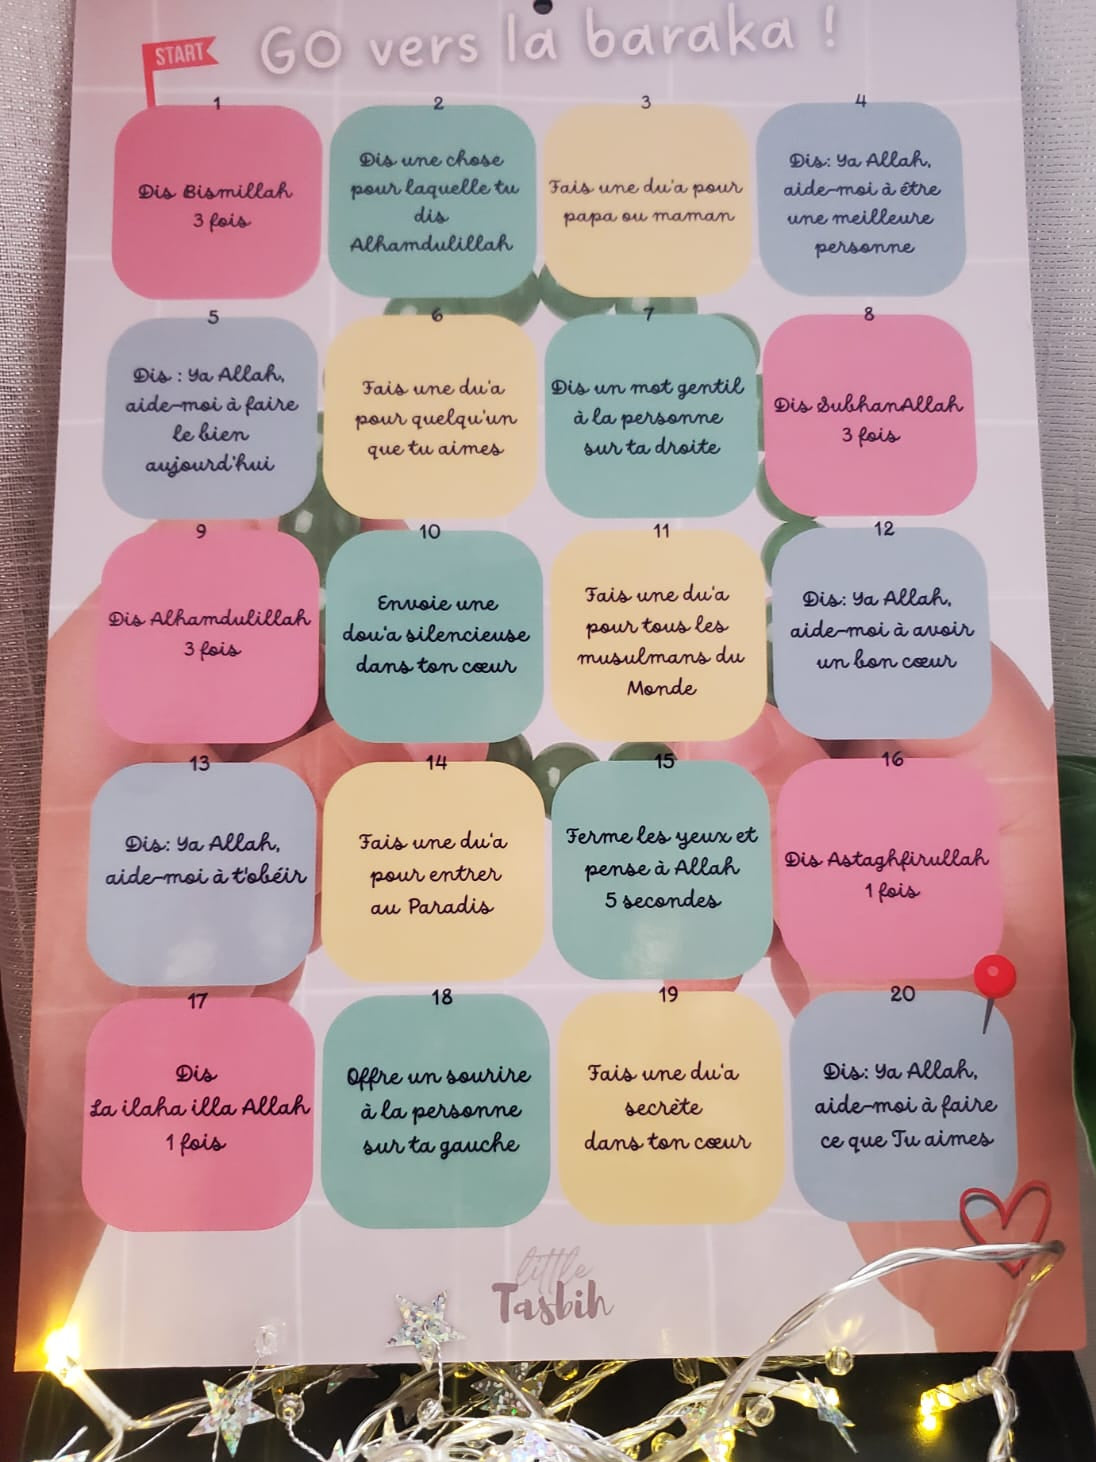 GO vers la baraka !
START
1
Dis Bismillah
3 fois
2
Dis une chose
pour laquelle tu
dis
Alhamdulillah
3
Fais une du'a pour
papa ou maman
4
Dis: Ya Allah,
aide-moi à être
une meilleure
personne
5
Dis : Ya Allah,
aide-moi à faire
le bien
aujourd'hui
6
Fais une du'a
pour quelqu'un
que tu aimes
7
Dis un mot gentil
à la personne
sur ta droite
8
Dis SubhanAllah
3 fois
9
Dis Alhamdulillah
3 fois
10
Envoie une
dou'a silencieuse
dans ton cœur
11
Fais une du'a
pour tous les
musulmans du
Monde
12
Dis: Ya Allah,
aide-moi à avoir
un bon cœur
13
Dis: Ya Allah,
aide-moi à t'obéir
14
Fais une du'a
pour entrer
au Paradis
15
Ferme les yeux et
pense à Allah
5 secondes
16
Dis Astaghfirullah
1 fois
17
Dis
La ilaha illa Allah
1 fois
18
Offre un sourire
à la personne
sur ta gauche
19
Fais une du'a
secrète
dans ton cœur
20
Dis: Ya Allah,
aide-moi à faire
ce que Tu aimes
little
Tasbih